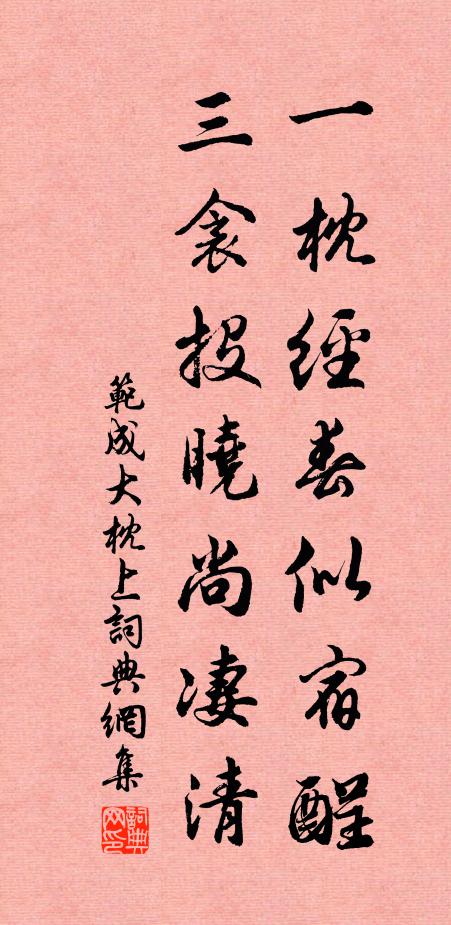 一枕經春似宿酲
三衾投曉尚凄清
範成大枕上詞典網集
詞典网印